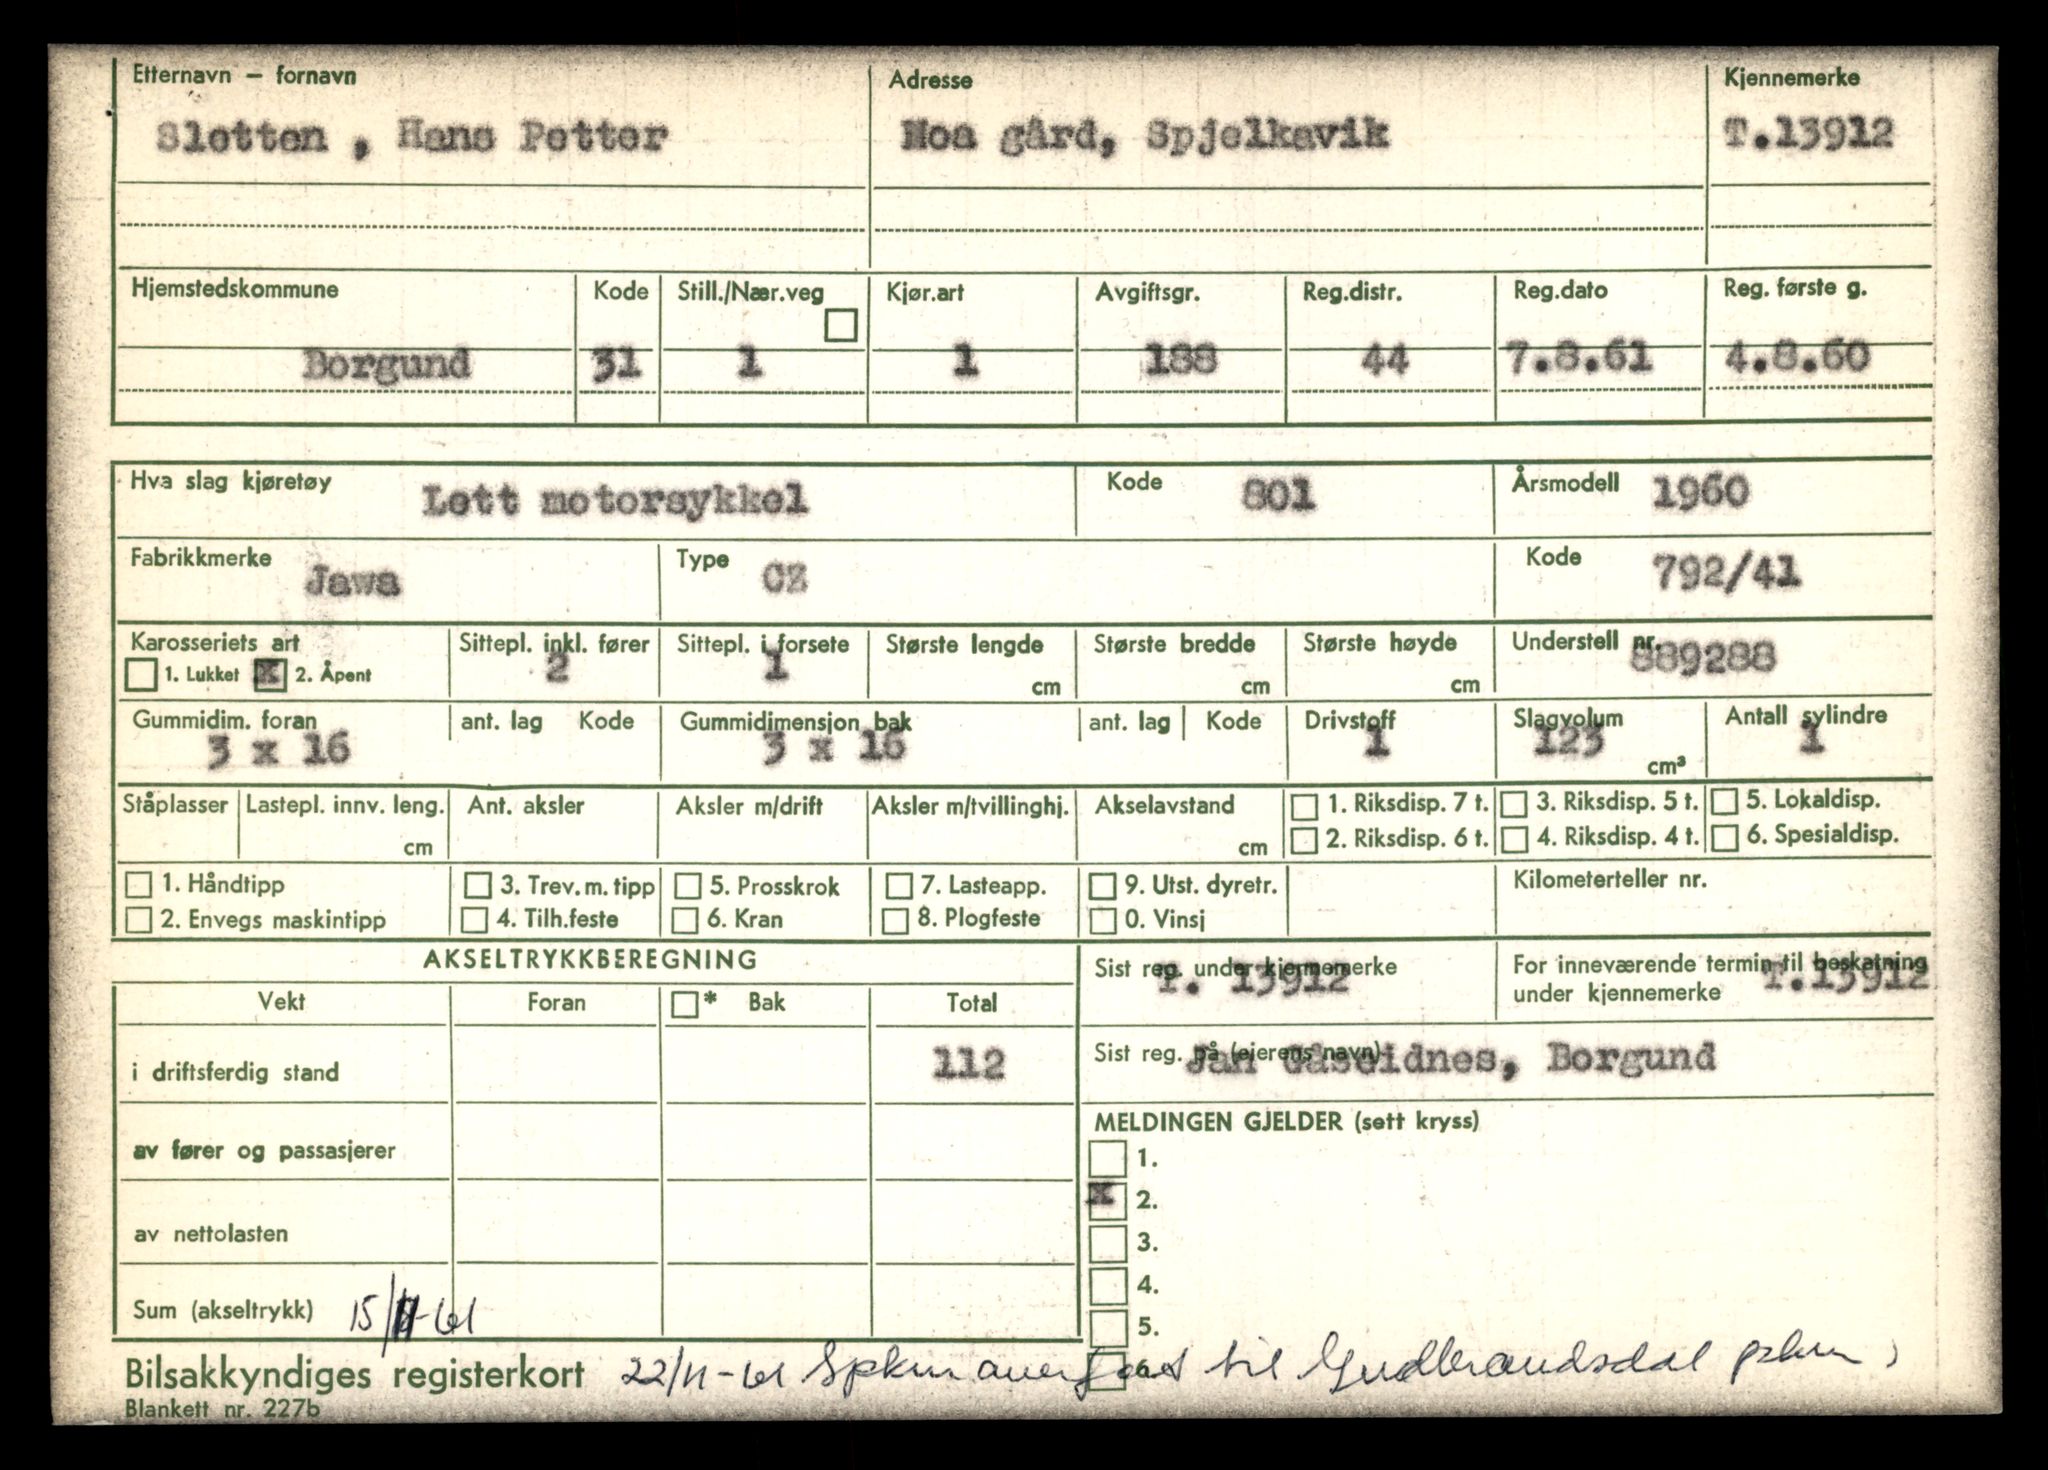 Etternavn – fornavn Adresse Kjennemerke
Sletten , Hans Petter Moa gård, Spjelkavik T.13912
Hjemstedskommune Kode Still./Nær.veg Kjør.art Avgiftsgr. Reg.distr. Reg.dato Reg. første g.
Borgund 31 1 1 188 44 7.8.61 4.8.60
Hva slag kjøretøy Lett motorsykkel Kode 801 Årsmodell 1960
Fabrikkmerke Jawa Type CZ Kode 792/41
Karosseriets art Sittepl. inkl. fører Sittepl. i forsete Største lengde Største bredde Største høyde Understell nr.
1. Lukket x 2. Åpent 2 1 cm cm cm 889288
Gummidim. foran ant. lag Kode Gummidimensjon bak ant. lag Kode Drivstoff Slagvolum Antall sylindre
3 x 16 3 x 16 1 123 cm³ 1
Ståplasser Lastepl. innv. leng. Ant. aksler Aksler m/drift Aksler m/tvillinghj. Akselavstand 1. Riksdisp. 7 t. 3. Riksdisp. 5 t. 5. Lokaldisp.
cm cm 2. Riksdisp. 6 t. 4. Riksdisp. 4 t. 6. Spesialdisp.
1. Håndtipp 3. Trev. m. tipp 5. Prosskrok 7. Lasteapp. 9. Utst. dyretr. Kilometerteller nr.
2. Envegs maskintipp 4. Tilh.feste 6. Kran 8. Plogfeste 0. Vinsj
AKSELTRYKKBEREGNING Sist reg. under kjennemerke T. 13912 For inneværende termin til beskatning
under kjennemerke T.13912
Vekt Foran * Bak Total
i driftsferdig stand 112 Sist reg. på (eierens navn) Jan Gåseidnes, Borgund
MELDINGEN GJELDER (sett kryss)
av fører og passasjerer 1.
x 2.
av nettolasten 3.
4.
Sum (akseltrykk) 15/11-61 5.
6.
Bilsakkyndiges registerkort 22/11-61 Spkm overført til Gudbrandsdal pkm
Blankett nr. 227b